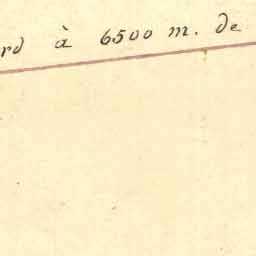 rd à 6500 m. de